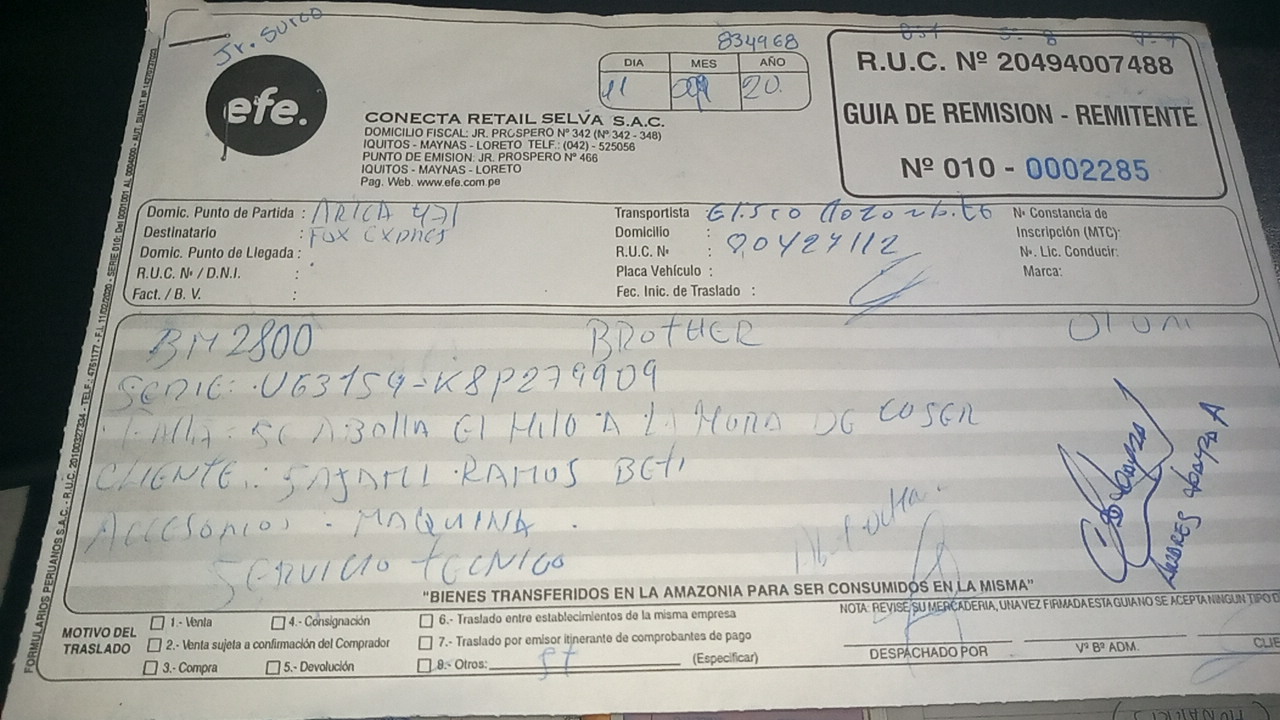 Jr. Surco
834968
efe.
DIA MES AÑO
11 09 20.
CONECTA RETAIL SELVA S.A.C.
DOMICILIO FISCAL: JR. PROSPERO Nº 342 (Nº 342 - 348)
IQUITOS - MAYNAS - LORETO TELF.: (042) - 525056
PUNTO DE EMISION: JR. PROSPERO Nº 466
IQUITOS - MAYNAS - LORETO
Pag. Web. www.efe.com.pe
R.U.C. Nº 20494007488
GUIA DE REMISION - REMITENTE
Nº 010 - 0002285
Domic. Punto de Partida : ARICA 471
Destinatario : FOX EXPRES
Domic. Punto de Llegada :
R.U.C. Nº / D.N.I. :
Fact. / B. V. :
Transportista
Domicilio :
R.U.C. Nº : 80427112
Placa Vehículo :
Fec. Inic. de Traslado :
Nº Constancia de
Inscripción (MTC):
Nº. Lic. Conducir:
Marca:
BM2800 BROTHER 01 UNI
SERIE: U63154-K8P279909
FALLA: SE ABOLLA EL HILO A LA HORA DE COSER
CLIENTE: SAJAMI RAMOS BETI
ACCESORIOS: MAQUINA.
SERVICIO TECNICO
"BIENES TRANSFERIDOS EN LA AMAZONIA PARA SER CONSUMIDOS EN LA MISMA"
MOTIVO DEL
TRASLADO
1.- Venta
2.- Venta sujeta a confirmación del Comprador
3.- Compra
4.- Consignación
5.- Devolución
6.- Traslado entre establecimientos de la misma empresa
7.- Traslado por emisor itinerante de comprobantes de pago
8.- Otros: ST (Especificar)
NOTA: REVISE SU MERCADERIA, UNA VEZ FIRMADA ESTA GUIA NO SE ACEPTA NINGUN TIPO
DESPACHADO POR
Vº Bº ADM.